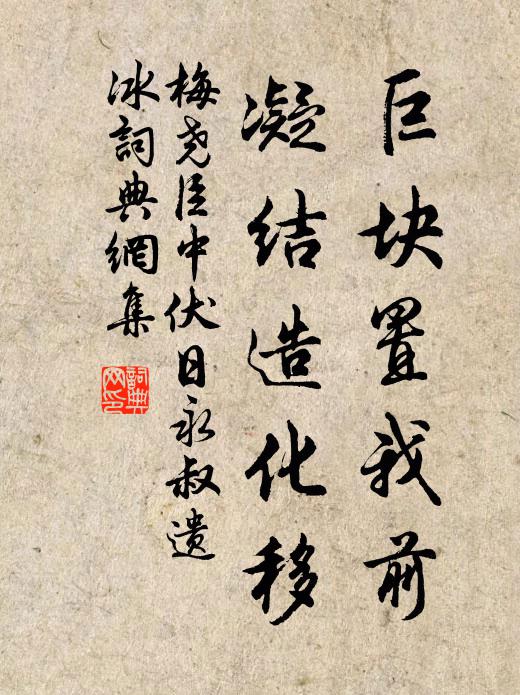 巨块置我前
凝结造化移
梅尧臣中伏日永叔遗
冰詞典網集
詞典
网印